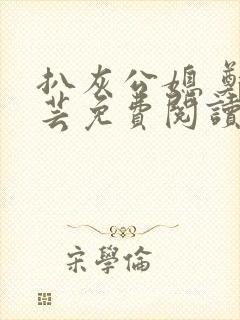 扒灰公媳 鄭
芸免費閱讀
宋學倫